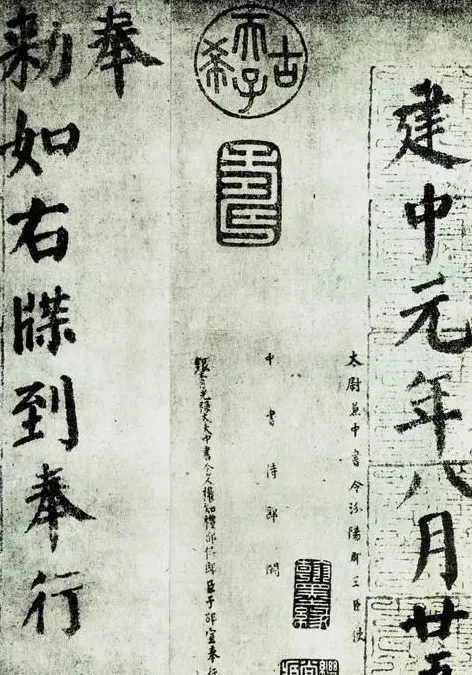 建中元年八月廿五
太尉兼中書令汾陽郡王臣使
中書侍郎闕
古希天子
銀青光祿大夫中書舍人權知禮部侍郎臣于邵宣奉行
奉
勅如右牒到奉行